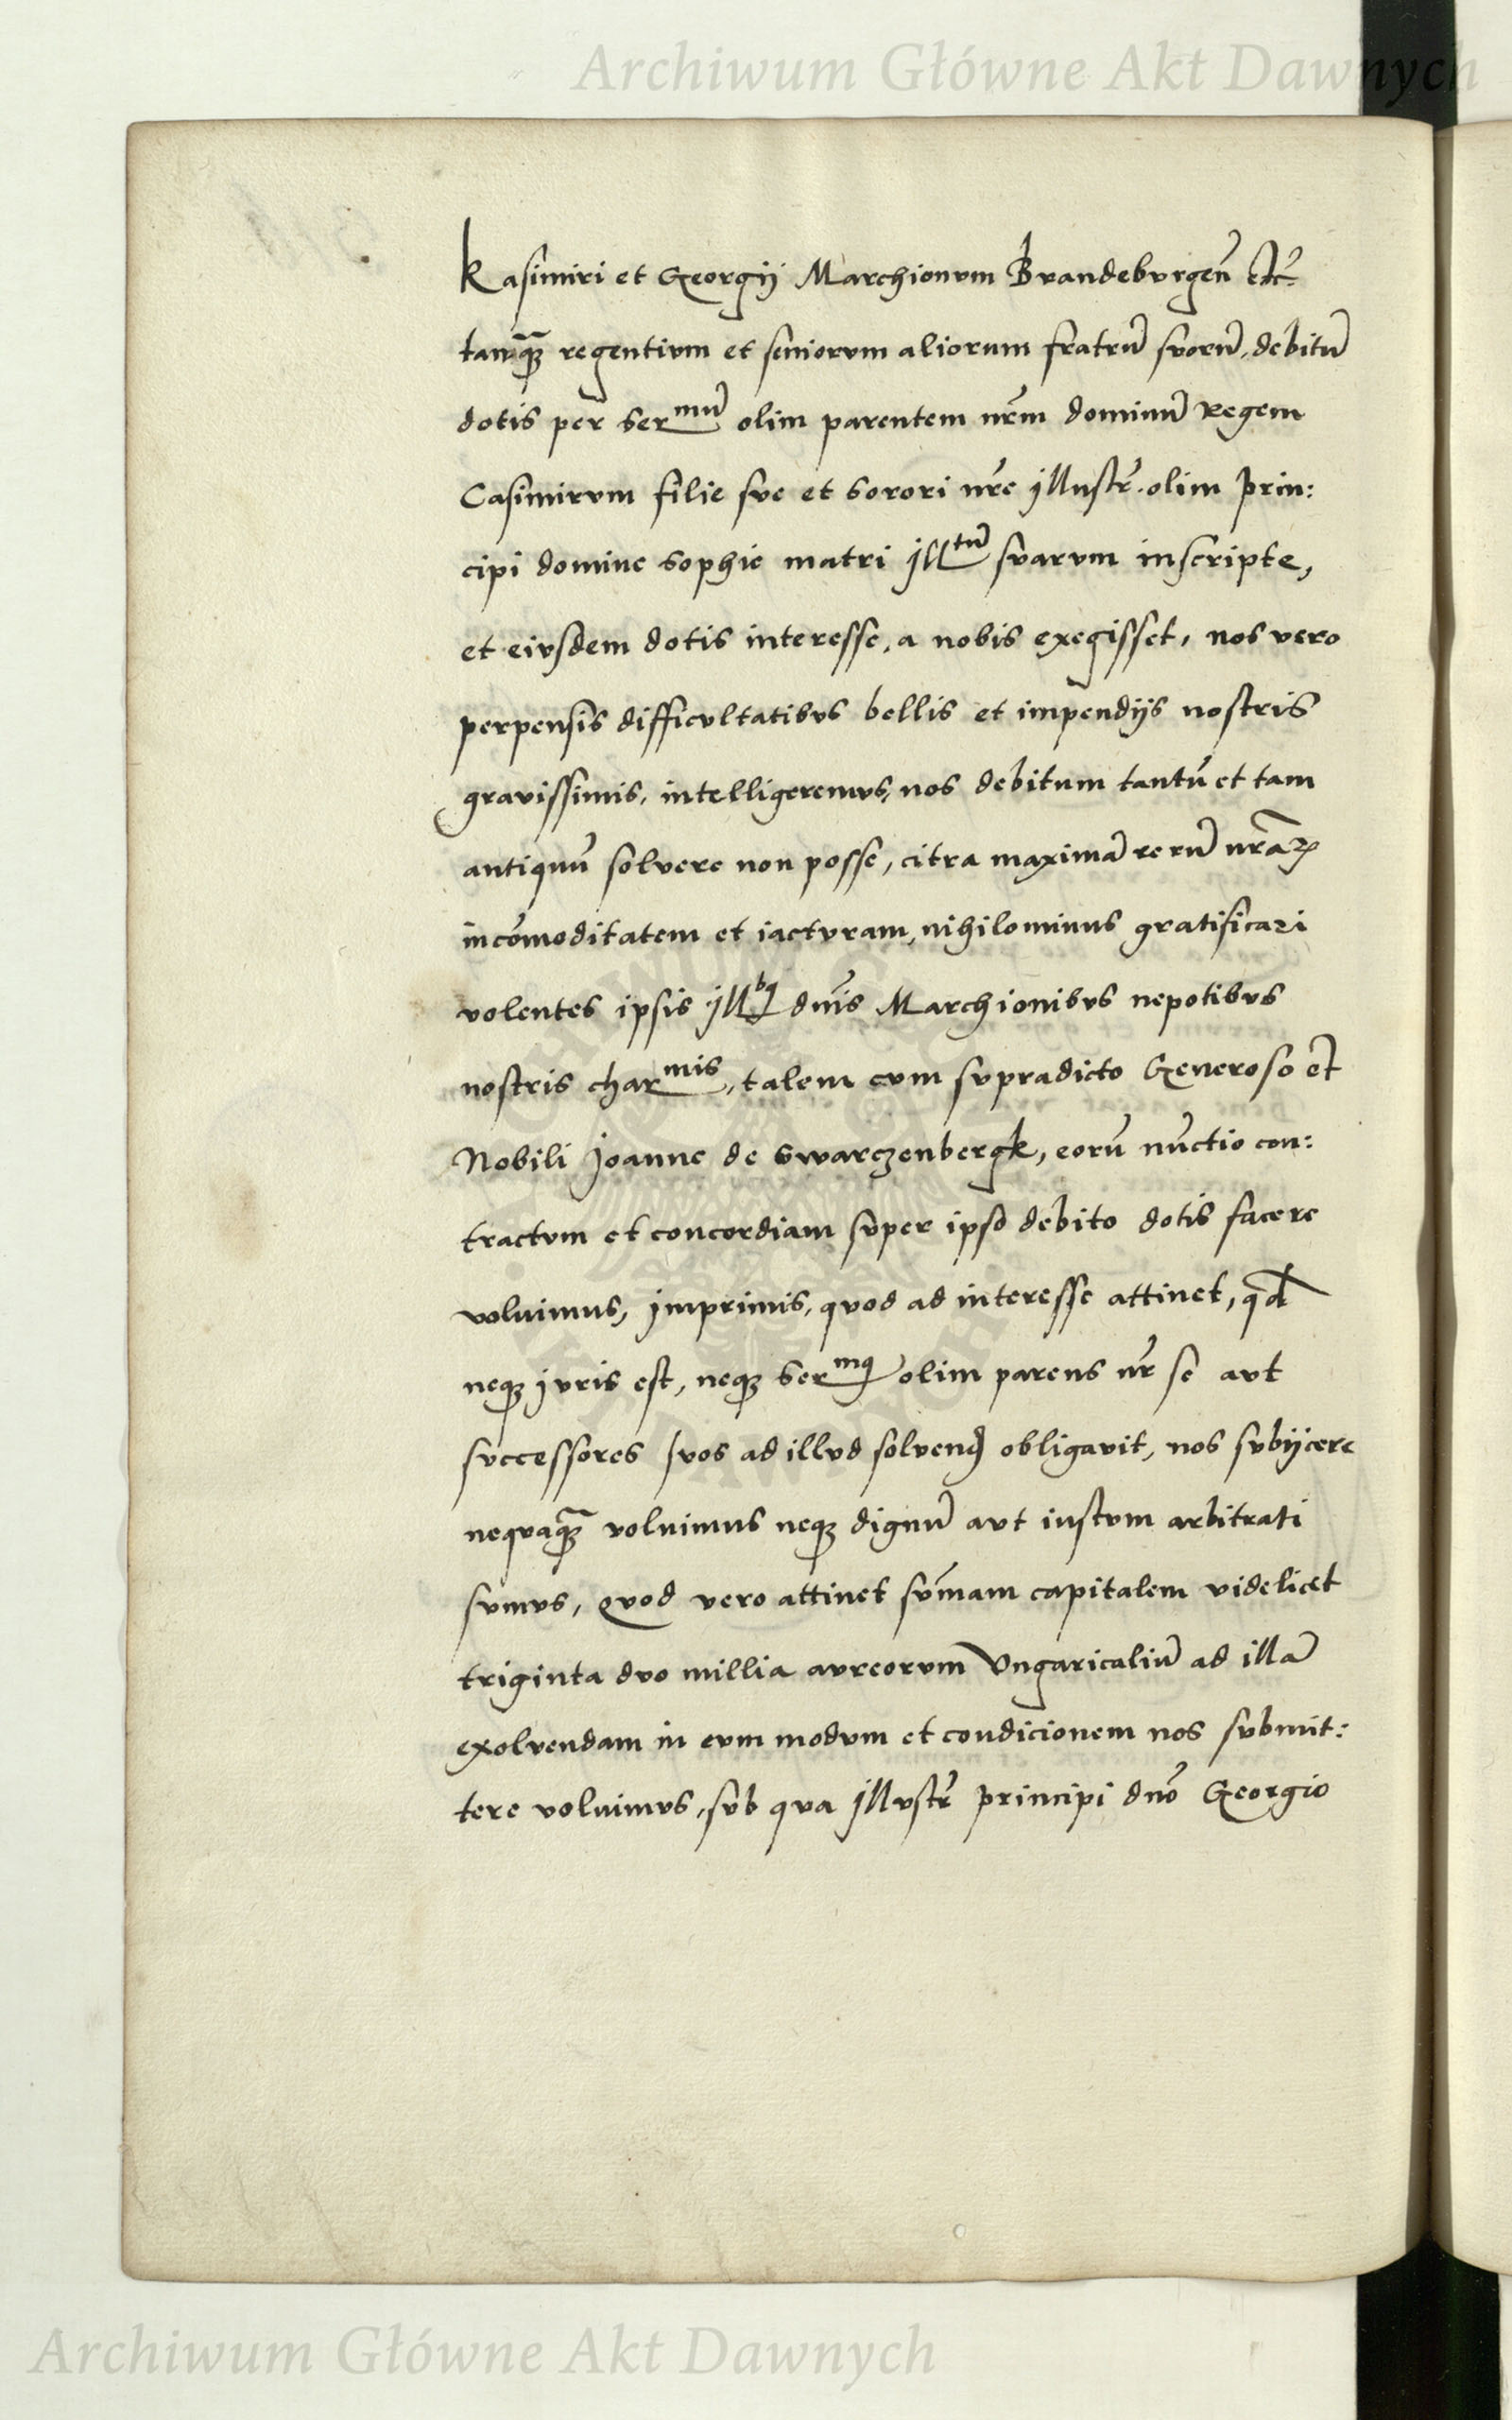 Archiwum Główne Akt Dawnych
Kasimiri et Georgij Marchionvm Brandebvrgen̄ etc̄
tamq̃ꝫ regentivm et seniorvm aliorum fratrū svorū, debitū
dotis per Serᵐᵘ̄ olim parentem nr̄m dominū Regem
Casimirvm filie sve et Sorori nr̄e jllustr̄. olim Prin:
cipi domine Sophie matri jllᵗᵘ̄ svarvm inscripte,
et eivsdem dotis interesse, a nobis exegisset, nos vero
perpensis difficvltatibvs bellis et impendijs nostris
gravissimis, intelligeremvs, nos debitum tantū et tam
antiquū solvere non posse, citra maximā rerū nrāꝝ
incōmoditatem et iactvram, nihilominus gratificari
volentes ipsis jllᵇꝯ dn̄is Marchionibvs nepotibvs
nostris charᵐⁱˢ, talem cvm svpradicto Generoso et
Nobili Joanne de Swarczenbergk, eorū nūctio con:
tractvm et concordiam svper ipso debito dotis facere
voluimus, jmprimis, qvod ad interesse attinet, qđ
neqꝫ jvris est, neqꝫ Serᵐꝯ olim parens nr̄ se avt
svccessores svos ad illvd solvend̄ obligavit, nos svbijcere
neqvaq̃ꝫ voluimus neqꝫ dignū avt iustvm arbitrati
svmvs, Qvod vero attinet sv̄mam capitalem videlicet
triginta dvo millia avreorvm Vngaricaliū ad illā
exolvendam in evm modvm et condicionem nos svbmit:
tere voluimvs, svb qva jllvstr̄ principi dn̄o Georgio
Archiwum Główne Akt Dawnych